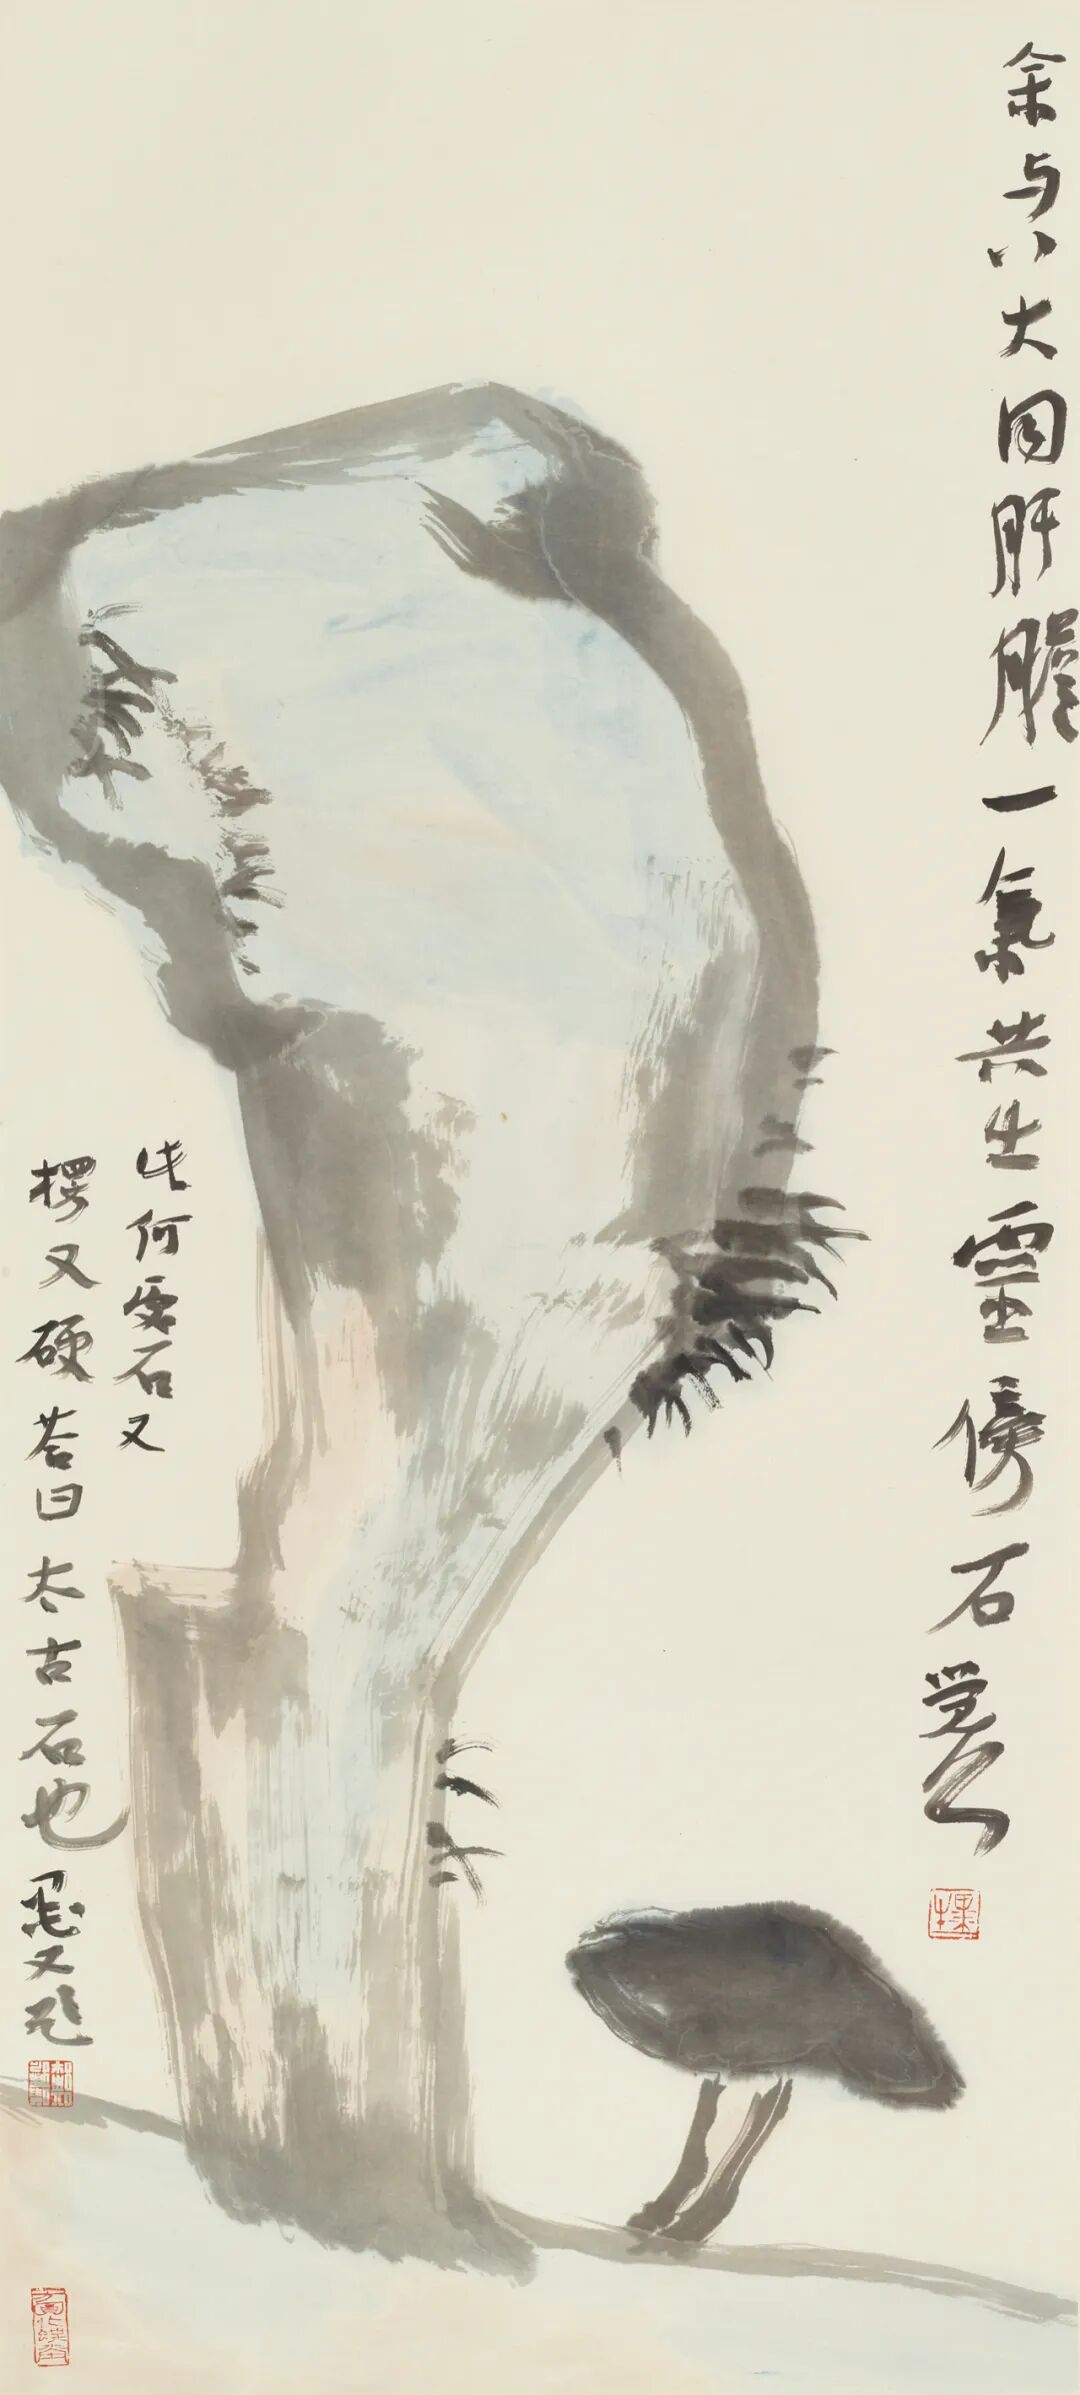 余与八大同肝膽一氣共生靈傍石
此何處石又
楞又硬答曰太古石也